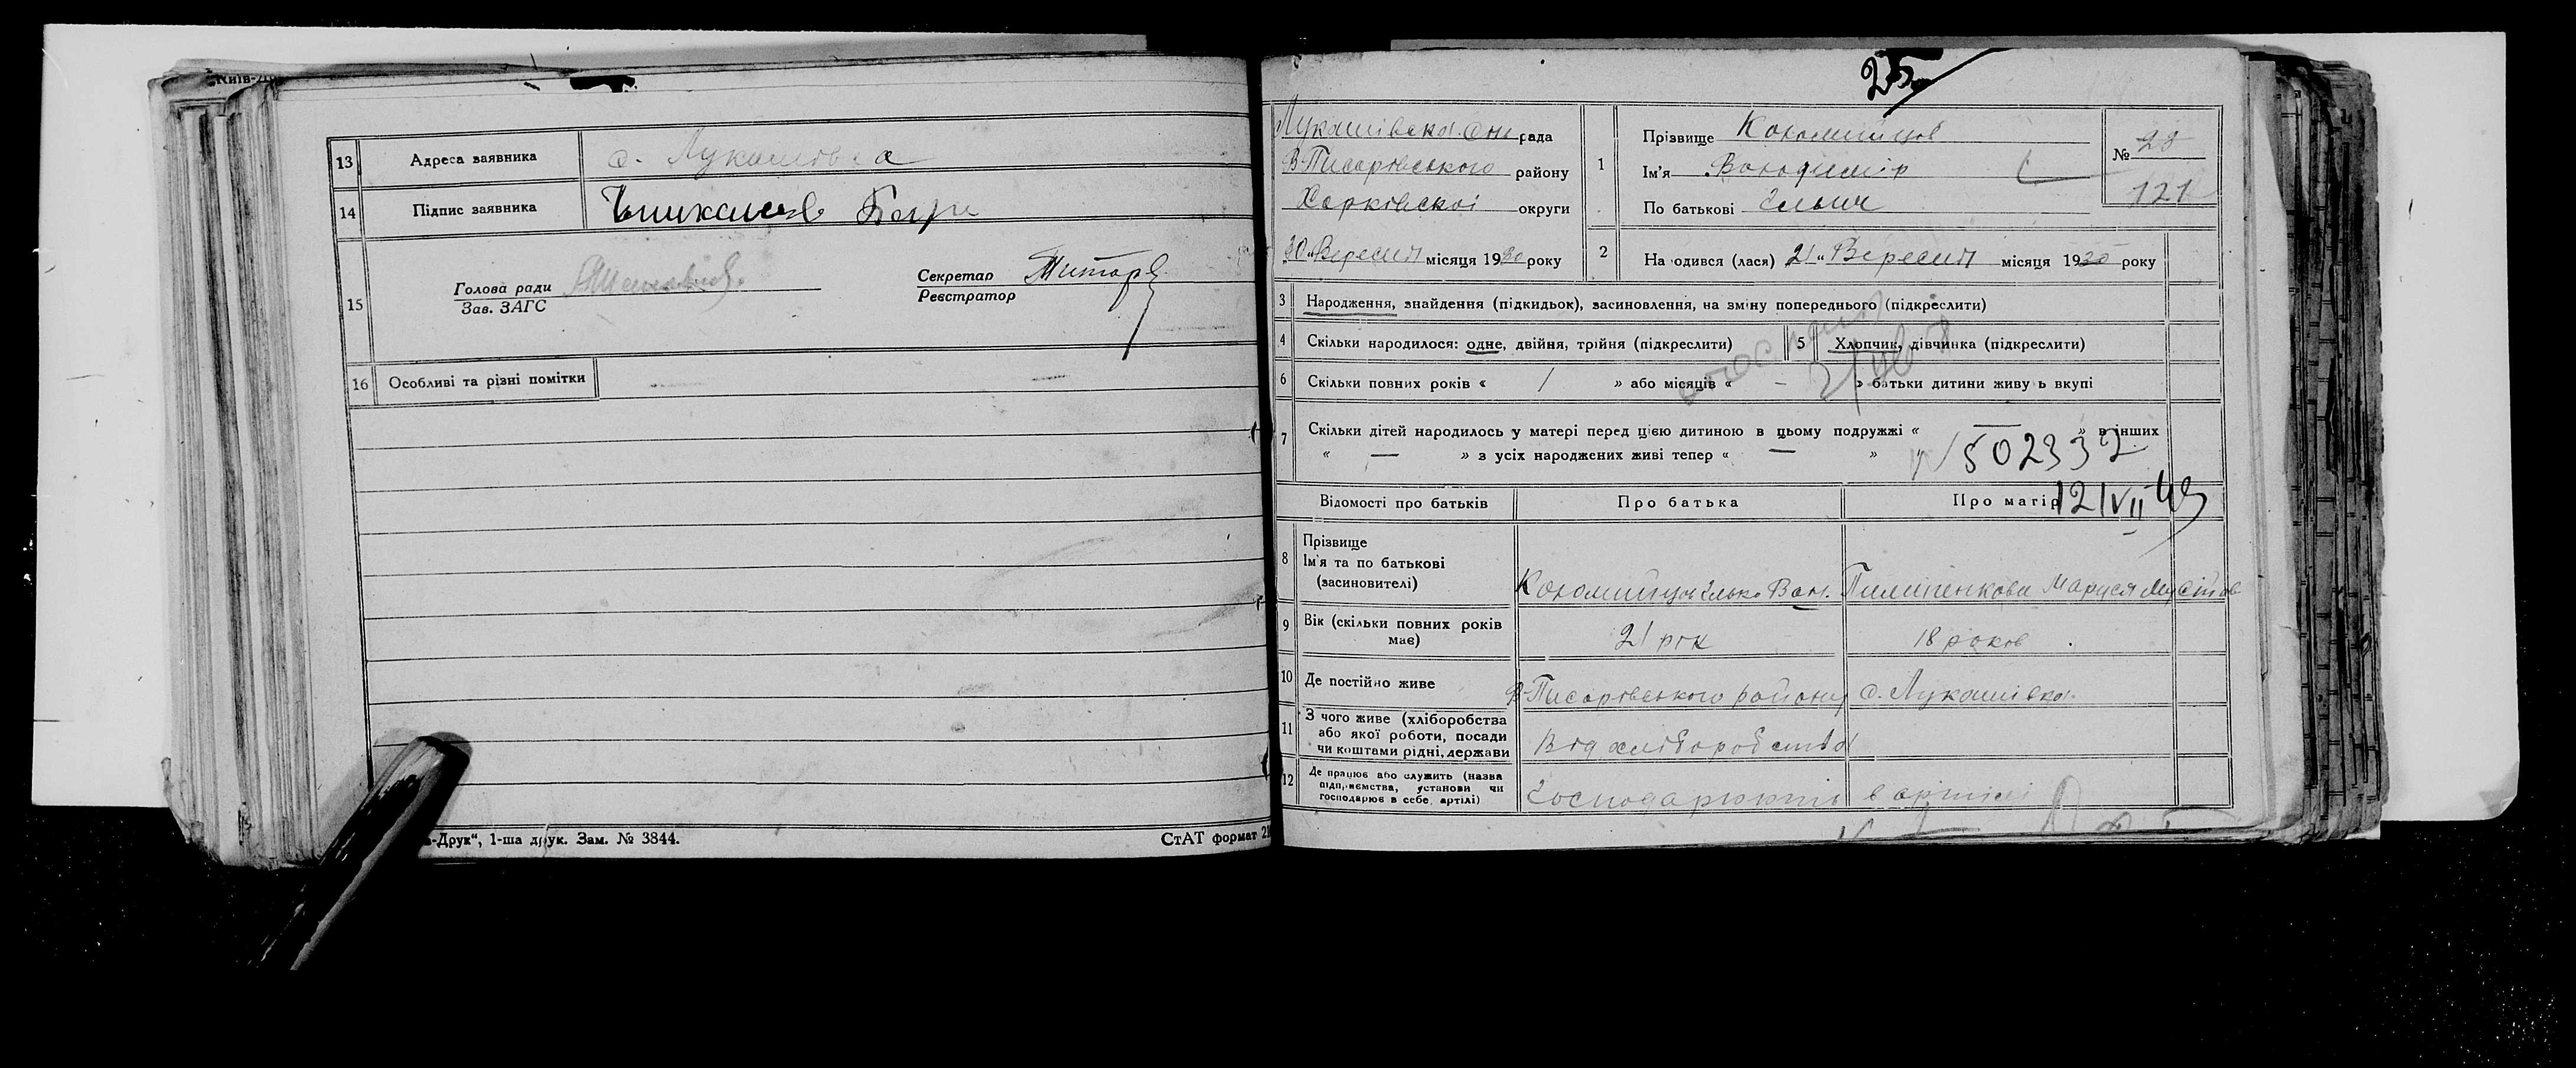 Київ-Др
13 Адреса заявника с. Лукашівка
14 Підпис заявника
15 Голова ради
Зав. ЗАГС
Секретар
Реєстратор
16 Особливі та різні помітки
-Друк“, 1-ша друк. Зам. № 3844.
СтАТ формат 21
25
Лукашівська рада
В Писарівського району
Харківскоі округи
„30“ Вересня місяця 1930 року
1 Прізвище Коломийцов
Ім'я Володимір
По батькові Ільич
№ 28
121
2 На одився (лася) 21 „ Вересня місяця 1930 року
3 Народження, знайдення (підкидьок), засиновлення, на зміну попереднього (підкреслити)
4 Скільки народилося: одне, двійня, трійня (підкреслити)
5 Хлопчик, дівчинка (підкреслити)
6 Скільки повних років « 1 » або місяців « – » батьки дитини живу ь вкупі
7 Скільки дітей народилось у матері перед цією дитиною в цьому подружжі « — » в інших
« — » з усіх народжених живі тепер « — »
N 502332
12/VII 49
Відомості про батьків Про батька Про матір
8 Прізвище
Ім'я та по батькові
(засиновителі)
Коломийцов Ілько Пилипенкова Маруся
9 Вік (скільки повних років
має)
21 рік 18 років
10 Де постійно живе В-Писарівського району с. Лукашівка
11 З чого живе (хліборобства
або якої роботи, посади
чи коштами рідні, держави
Від хліборобства
12 Де працює або служить (назва
підприємства, установи чи
господарює в себе, артілі)
Господарюють в артілі